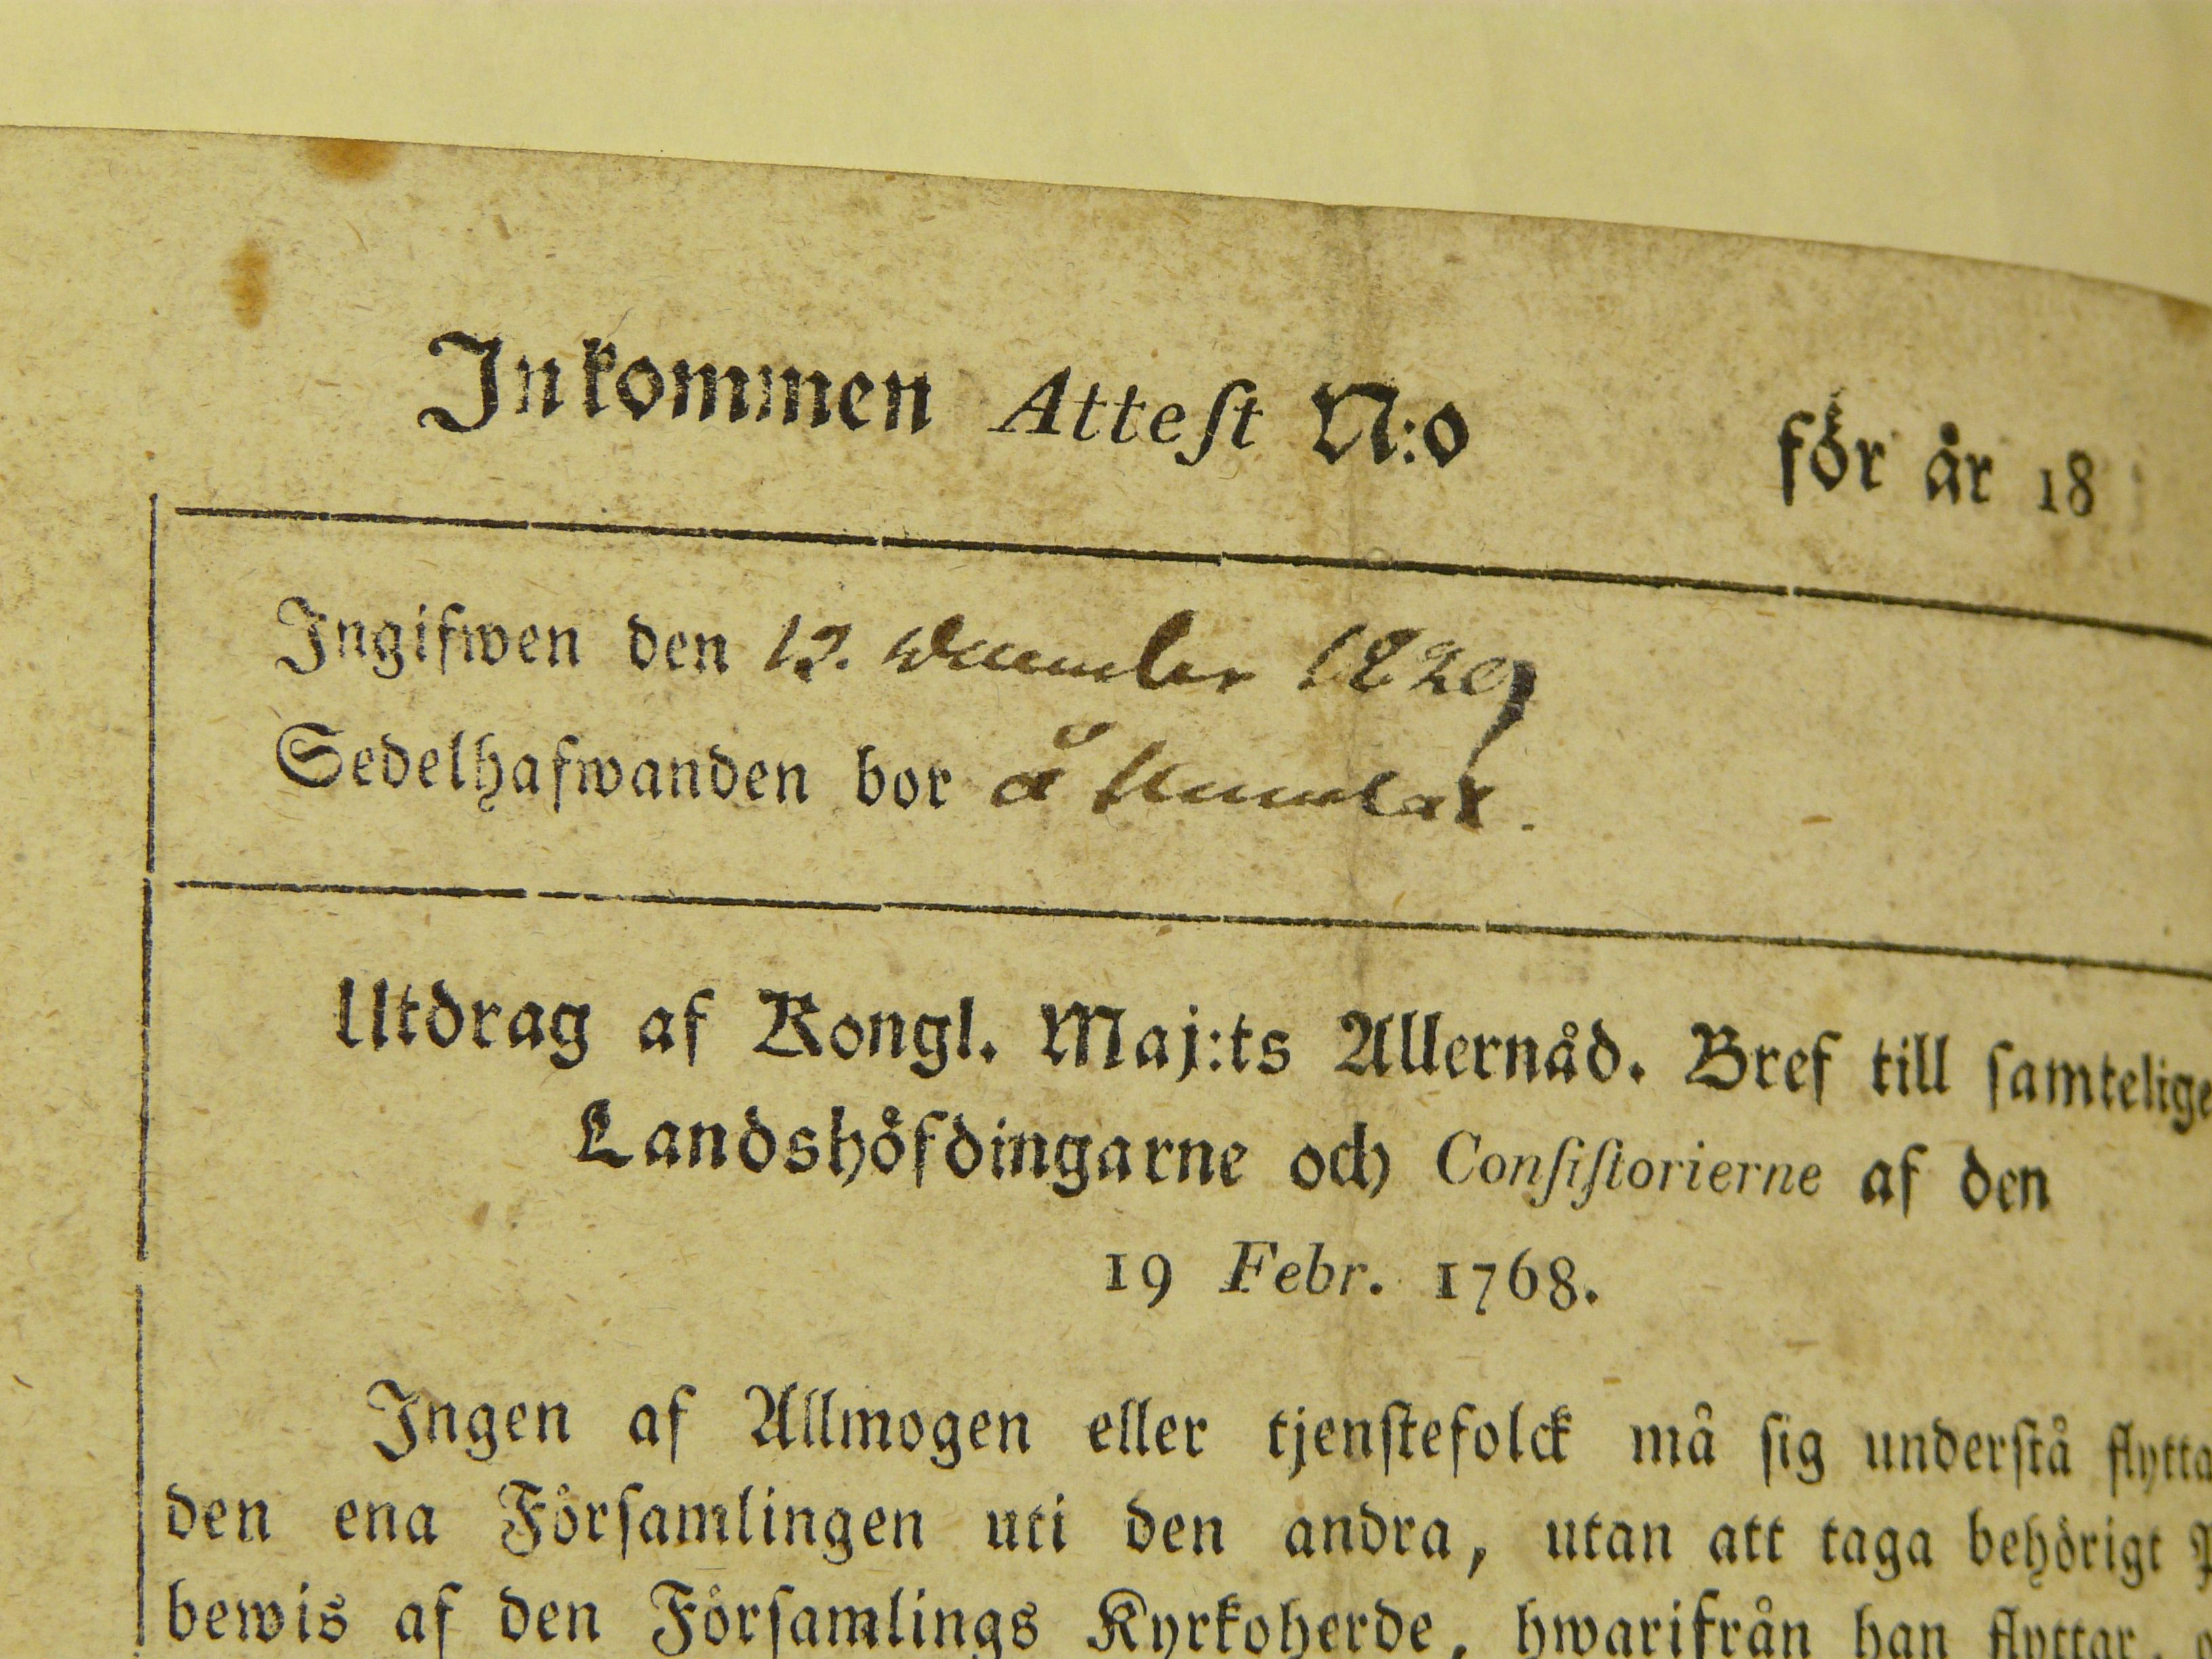 Inkommen Attest N:o för år 18
Ingifwen den 13. December 1829
Sedelhafwanden bor å
Utdrag af Kongl. Maj:ts Allernåd. Bref till samtelige
Landshöfdingarne och Consistorierne af den
19 Febr. 1768.
Ingen af Allmogen eller tjenstefolck må sig understå flytta
den ena Församlingen uti den andra, utan att taga behörigt
bewis af den Församlings Kyrkoherde, hwarifrån han flyttar,